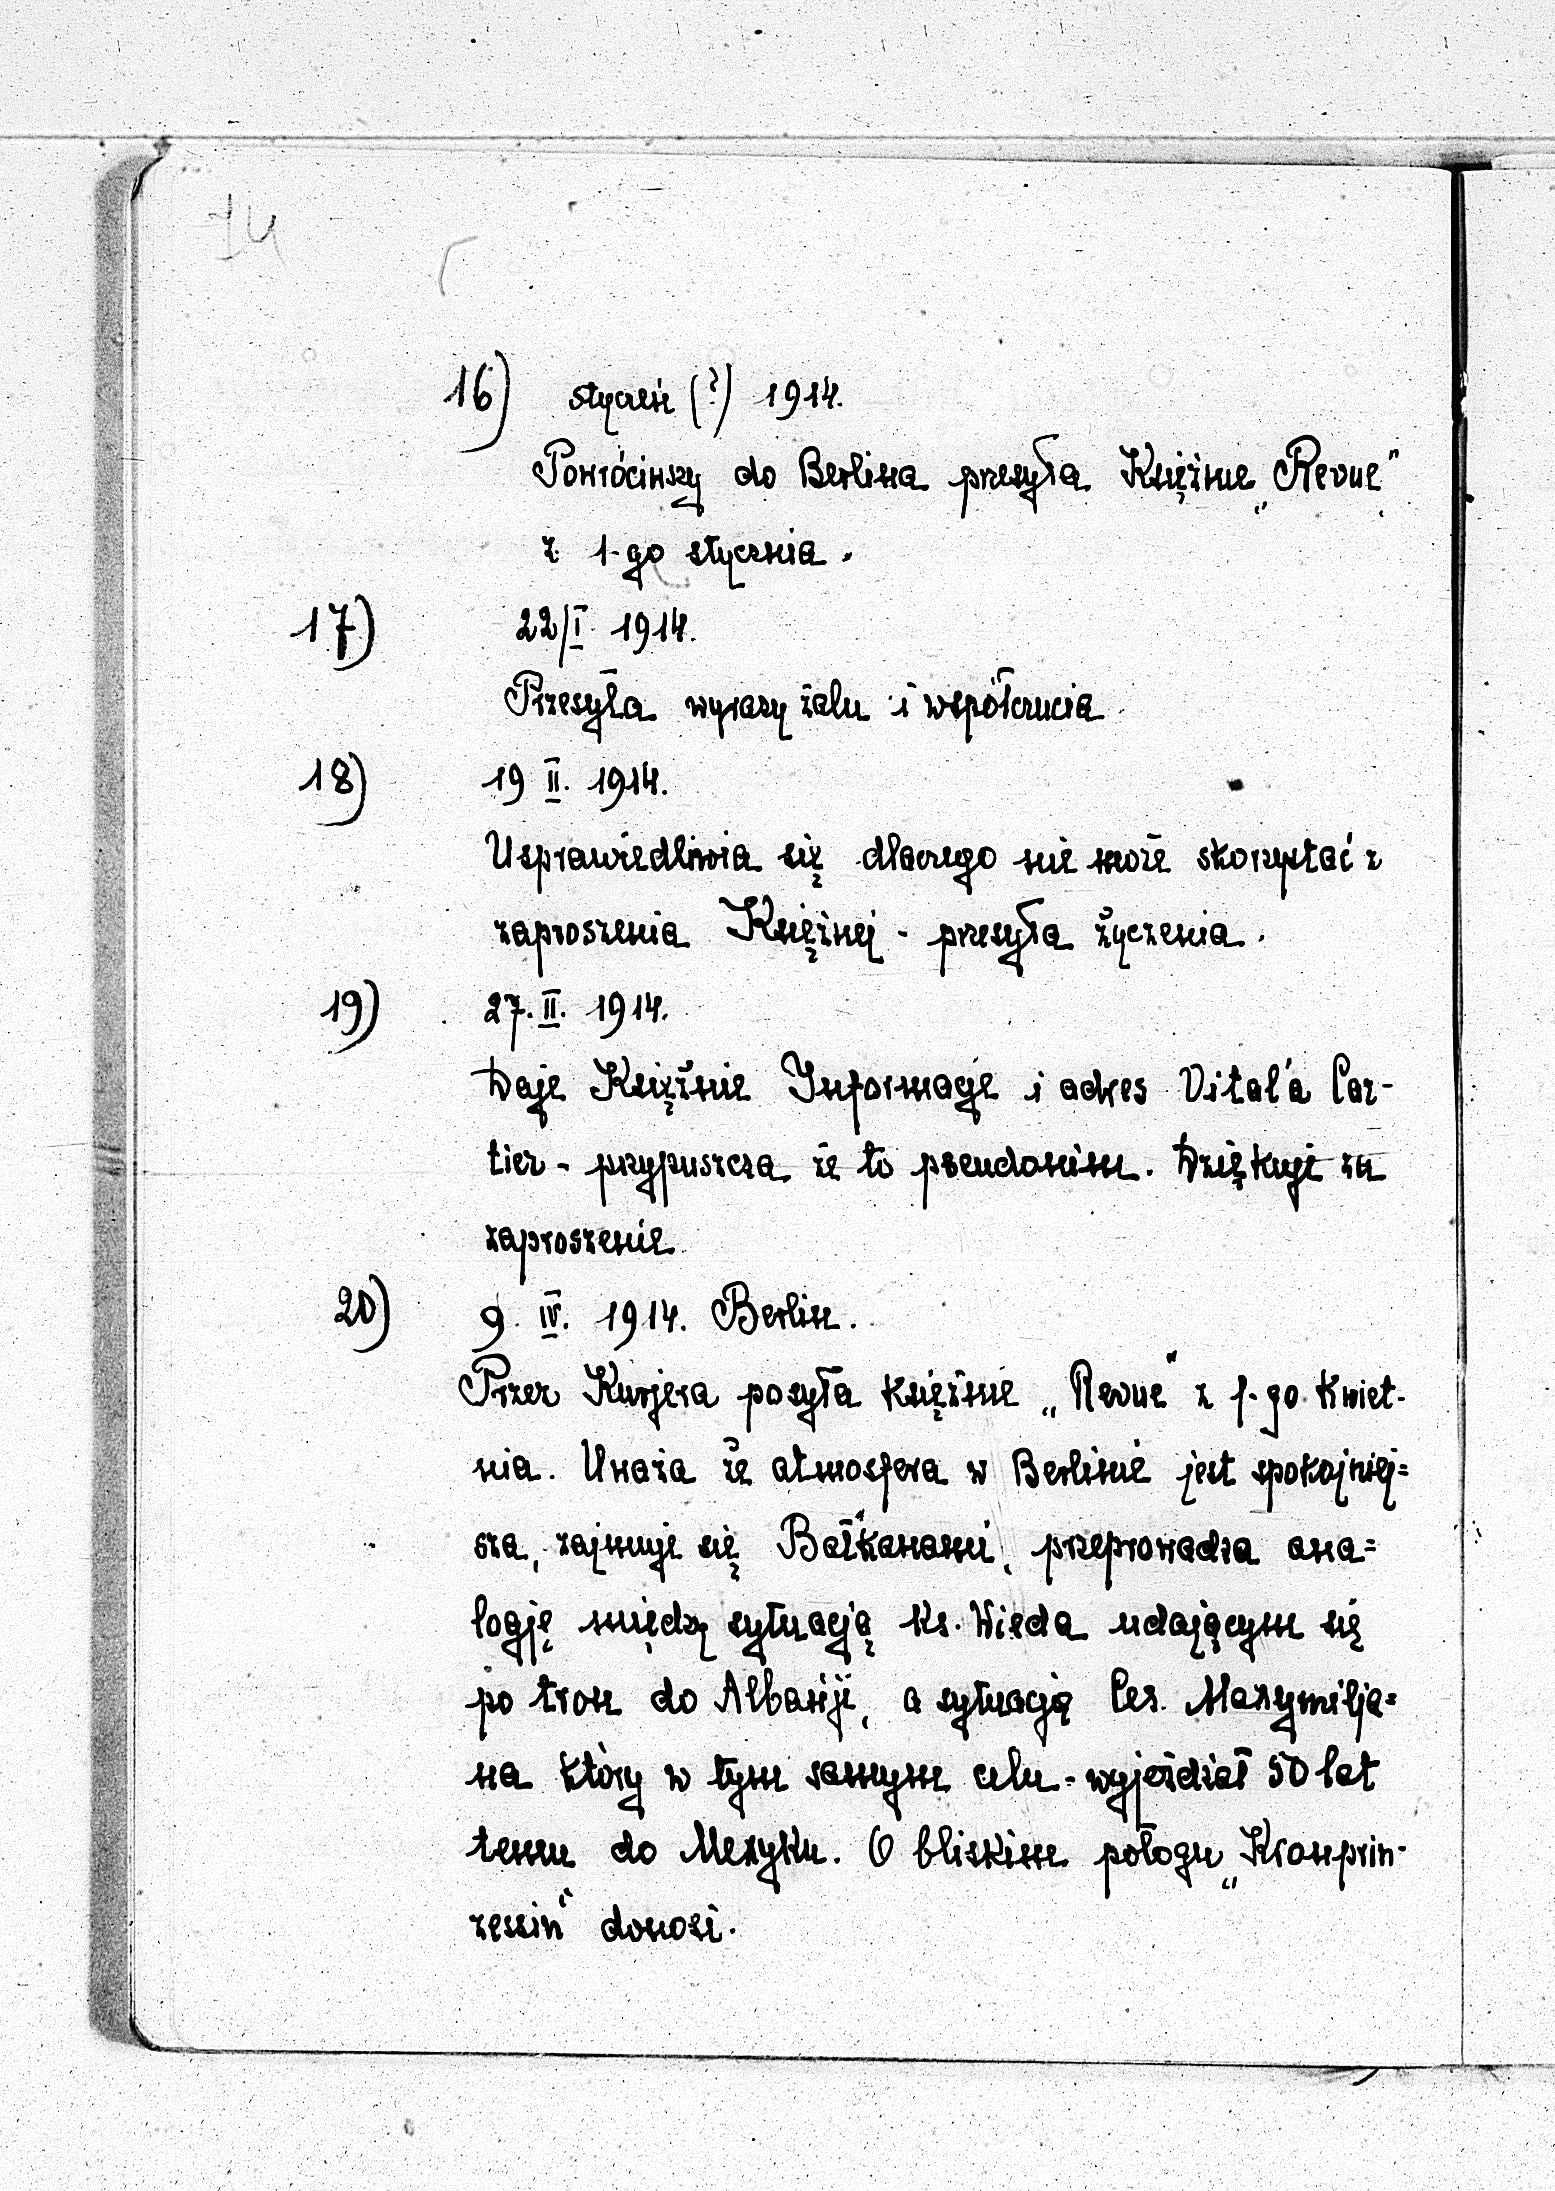 74
16) styczeń (?) 1914.
Powróciwszy do Berlina przesyła Księżnie „Revue"
z 1-go stycznia.
17) 22/I. 1914.
Przesyła wyrazy żalu i współczucia
18) 19 II. 1914.
Usprawiedliwia się dlaczego nie może skorzystać z
zaproszenia Księżnej - przesyła życzenia.
19) 27. II. 1914.
Daje Księżnie Informacje i adres Vital'a Car-
tier - przypuszcza że to pseudonim. Dziękuje za
zaproszenie.
20) 9. IV. 1914. Berlin.
Przez Kurjera posyła księżnie „Revue" z 1-go kwiet-
nia. Uważa że atmosfera w Berlinie jest spokojniej=
sza, zajmuje się Bałkanami, przeprowadza ana=
logję między sytuacją Ks. Wieda udającym się
po tron do Albanji, a sytuacją Ces. Maxymilja=
na który w tym samym celu - wyjeżdżał 50 lat
temu do Mexyku. O bliskim połogu „Kronprin-
zessin" donosi.